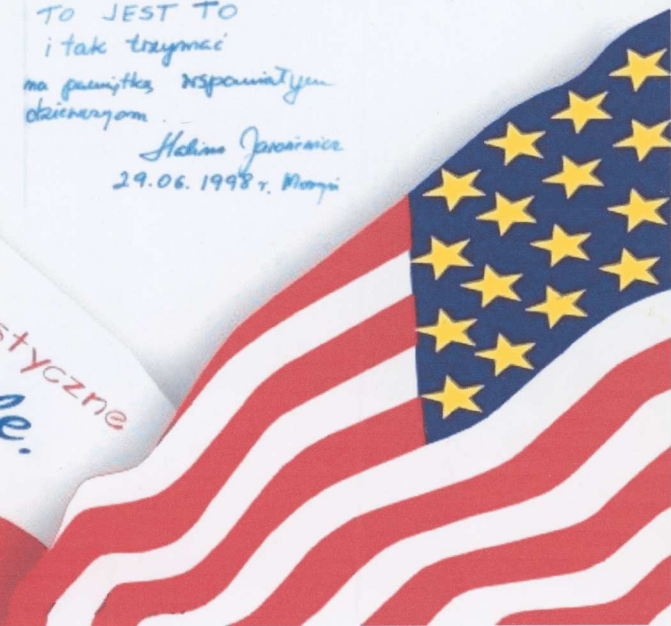 TO JEST TO
i tak trzymać
na pamiątkę wspaniałym
dziewczynom
Halina
29.06.1998 r.
styczne
e.